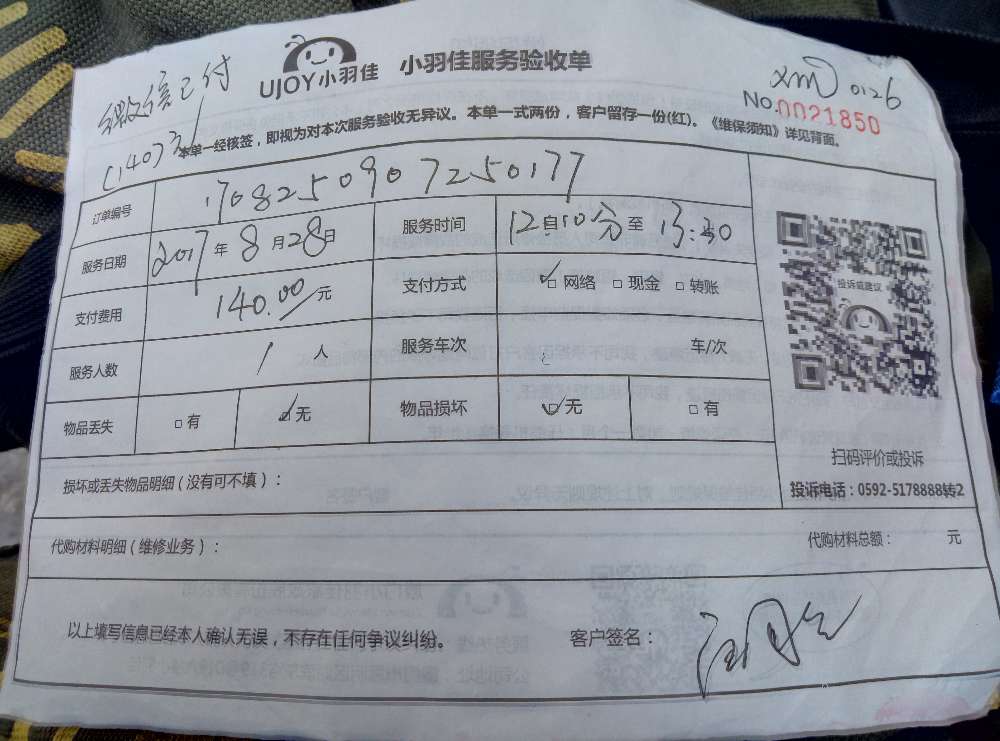 微信已付
(140)
UJOY小羽佳 小羽佳服务验收单
xm 0126
No.0021850
本单一经核签，即视为对本次服务验收无异议。本单一式两份，客户留存一份(红)。《维保须知》详见背面。
订单编号 1708250907250177
服务日期 2017年8月28日 服务时间 12自10分至13:30
支付费用 140.00元 支付方式 ☑网络 □现金 □转账
服务人数 1人 服务车次 车/次
物品丢失 □有 ☑无 物品损坏 ☑无 □有
投诉或建议
扫码评价或投诉
投诉电话：0592-5178888转2
损坏或丢失物品明细（没有可不填）：
代购材料明细（维修业务）： 代购材料总额： 元
以上填写信息已经本人确认无误，不存在任何争议纠纷。 客户签名：